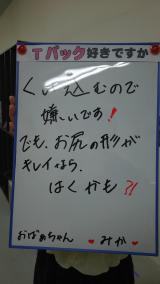 Tバック好きですか
くい込むので
嫌いです!
でも、お尻の形が
キレイなら、
はくかも?!
おばぁちゃん ♥みか♥